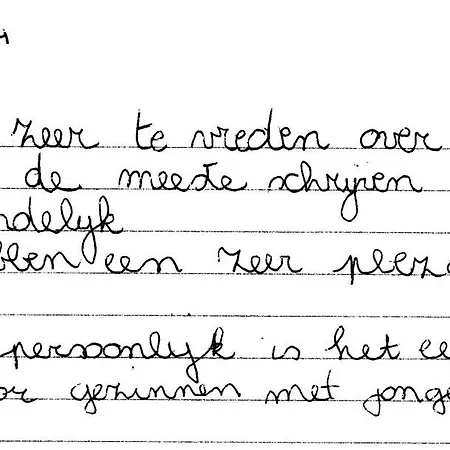 zeer te vreden over
de meeste schrijven
ndelijk
bben een zeer plez
persoonlijk is het ee
or gezinnen met jonge